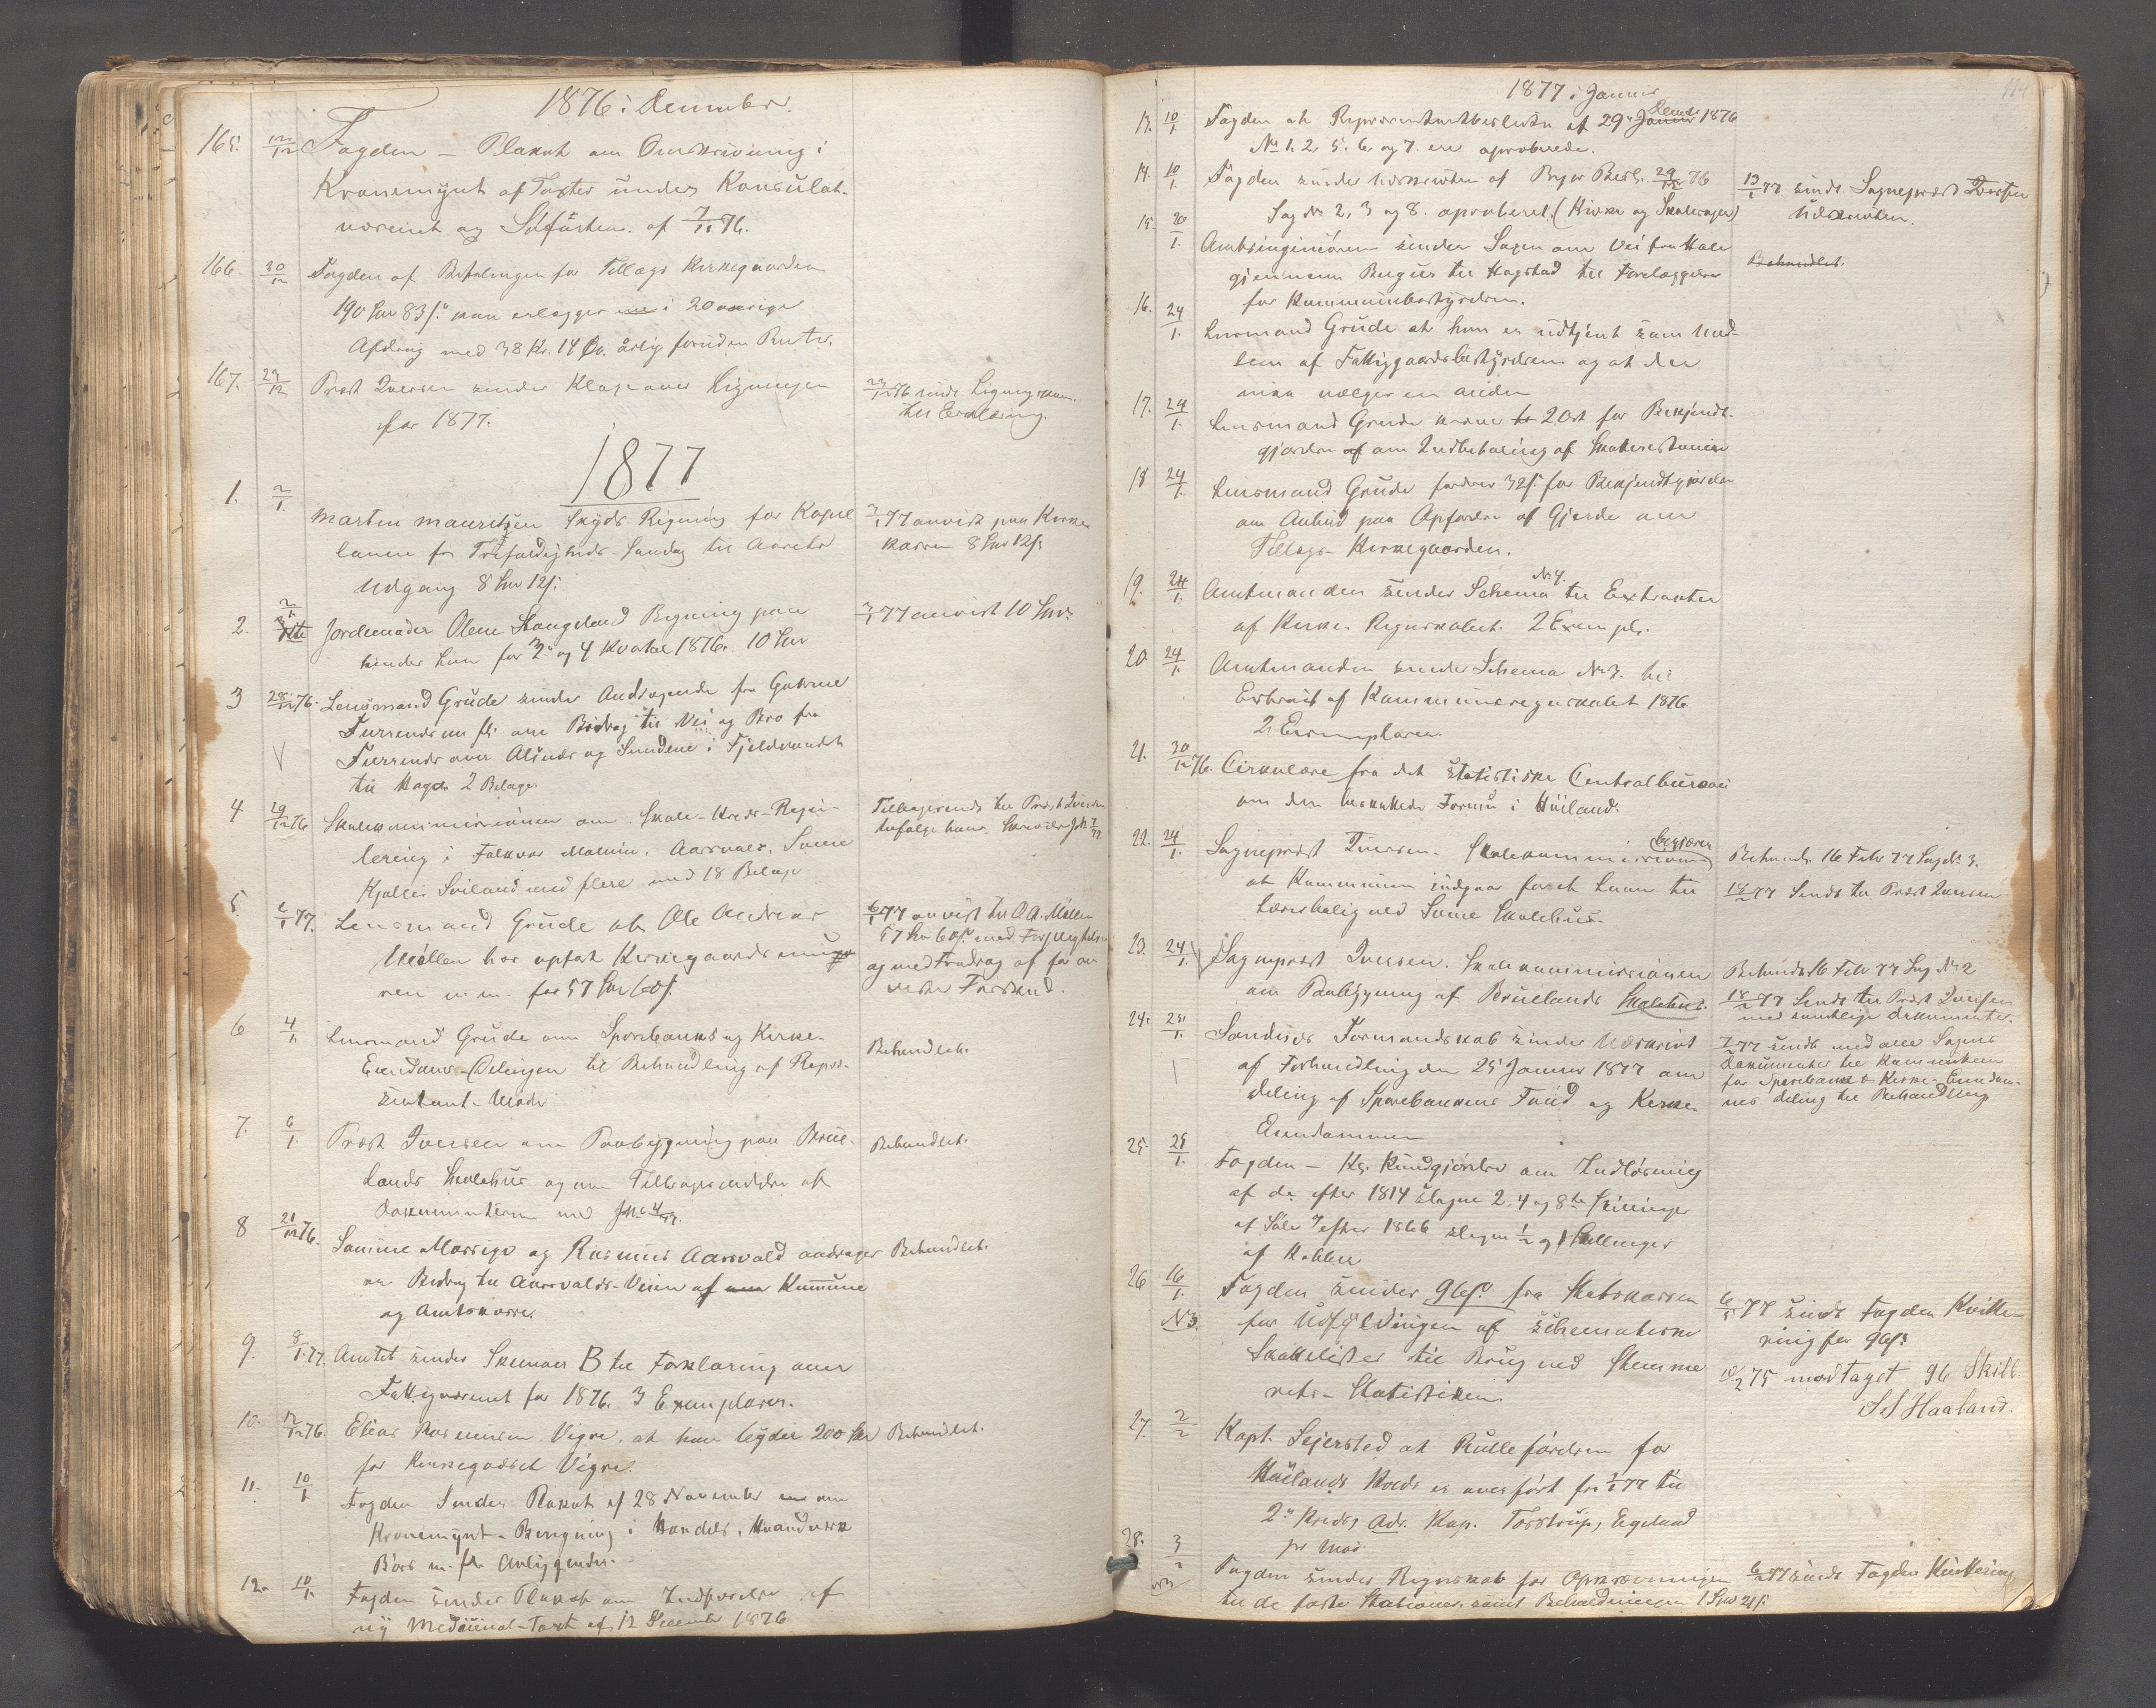 1876 i December.
165. 12/12 Fogden – Plakat om Omskrivning i
Kronemynt af Taxter under Konsulat-
væsenet og Söfarten. af 7/11 76.
166. 20/12 Fogden af Betalingen for Tillægs Kirkegaarden
190 Spd 83 s. kan erlægges i 20 aarige
Afdrag med 38 Kr. 14 Ø. årlig foruden Renter.
167. 23/12 Præst Iversen sender Klage over Ligningen
for 1877.
23/12 76 sendt Lignings
til Erklæring.
1877
1. 2/1 Martin Mauritzen Skyds Regning for Kapel
lanen fr Trefoldigheds-Søndag til Aarets
Udgang 8 Spd 12 s.
3/1 77 anvist paa Kirke
kassen 8 Spd 12 s.
2. 2/1 Jordemoder Olene Stangeland Regning paa
hendes Løn for 3. og 4 Kvartal 1876. 10 Spd
3/1 77 anvist 10 Spd.
3 28/12 76. Lensmand Grude sender Andragende fra
om Bidrag til Vei og Bro fra
over og Sundene i
til 2 Bilage
4 29/12 76 Skolekommissionen om Skole-Kreds-Regu-
lering i Folkvor Malmin, Aarsvoll, Some
Kjølles Sviland med flere med 18 Bilage
Tilbagesendt til Præst Iversen
ifølge hans Skrivelse
5. 2/1 77. Lensmand Grude at Ole Andreas
Möllen har opført Kirkegaardsmuren
m.m. for 57 Spd 60 s.
6/1 77 anvist til O. A. Möllen
57 Spd 60 s. med
og med Fradrag af
Forskud.
6 4/1. Lensmand Grude om Sparebanks og Kirke-
Eiendoms-Delingen til Behandling af Repræ-
sentant-Møde
Behandlet.
7. 6/1. Præst Iversen om Paabygning paa Brue-
lands Skolehus og om Tilbagesendelse af
Dokumenterne med
Behandlet.
8 21/12 76. Samme og Rasmus Aarsvold andrager
om Bidrag til Aarsvolds-Veien af Kommune
og Amtskasse.
Behandlet.
9. 8/1 77. Amtet sender Skemaer B til Forklaring over
Fattigvæsenet for 1876. 3 Exemplarer.
10. 12/12 76. Elias Rasmussen Vigre, at han byder 200 Spd
for Kirkegodset Vigre.
Behandlet.
11. 10/1 Fogden Sender Plakat af 28 November om
Kronemynt-Beregning i Handels, Haandverk
Börs m. fl. Anliggender.
12. 10/1. Fogden sender Plakat om Indførelse af
ny Medicinal-Taxt af 12 December 1876
1877 i Januar
114
13. 10/1. Fogden at Repræsentantbeslutn. af 29. Januar Decembr 1876
No 1. 2. 5. 6. og 7. ere aproberede.
14. 10/1. Fogden sender Udskriften af Repr. Besl. 29/12 76
Sag No 2, 3 og 8. aproberet. (Kirke og Skolesager)
13/1 77 sendt Sognepræst Iversen
Udskriften.
15. 20/1. Amtsingeniören sender Sagen om Vei fra Hole
gjennem til Hogstad til Forelæggelse
for Kommunebestyrelsen.
Behandlet.
16. 24/1. Lensmand Grude at han er udtjent som Med-
lem af Fattiggaardsbestyrelsen og at der
maa vælges en anden
17. 24/1. Lensmand Grude 2 Ort for Bekjendt-
gjørelse af om Indbetaling af Skatterestancer
18 24/1. Lensmand Grude fordrer 32 s. for Bekjendtgjørelse
om Anbud paa Opførelse af Gjerde om
Tillægs-Kirkegaarden.
19. 24/1. Amtmanden sender Schema No 4. til Extrakter
af Kirke-Regnskabet. 2 Exempl.
20. 24/1. Amtmanden sender Schema No 3. til
Extrait af Kommuneregnskabet 1876
2 Exemplarer
21. 30/12 76. Cirkulære fra det statistiske Centralbureau
om den beskattede Formue i Höiland.
22. 24/1. Sognepræst Iversen. Skolekommissionen begjærer
at Kommunen indgaar for et Laan til
Lærerbolig ved Some Skolehus.
Behandl. 16 Febr 77 Sag No 3.
18/2 77 Sendt til Præst Iversen
23. 24/1 Sognepræst Iversen. Skolekommissionen
om Paabygning af Bruelands Skolehus.
Behandlet 16 Febr 77 Sag No 2
18/2 77 Sendt til Præst Iversen
med samtlige Dokumenter.
24. 25/1. Sandnes Formandskab sender Udskrift
af Forhandling den 25 Januar 1877 om
Deling af Sparebankens Fond og Kirke-
Eiendommen
77 sendt med alle Sagens
Dokumenter til Kommiteen
for Sparebank & Kirke-Eiendom-
mes Deling til Behandling
25. 25/1. Fogden – Kg. Kundgjørelse om Indløsning
af de efter 1814 slagne 2. 4 og 8te Skillinger
af Sölv & efter 1866 slagne 1/2 og 1 Skillinger
af Kobber
26 16/1. Fogden sender 96 s. fra Statskassen
No 3. for Udfyldningen af Schematerne
Skattelister til Brug ved Stemme
rets-Statistiken
6/5 77 sendt Fogden Kvitte-
ring for 96 s.
10/2 75 modtaget 96 Skill.
S S Haaland.
27. 2/2 Kapt. Sejersted at Rulleførelsen for
Höilands Kreds er overført fra 1/1 77 til
2. Kreds, Adr. Kap. Torstrup, Egeland
pr Moi
28. 3/2 Fogden sender Regnskab for Opkrævningen
No 3 til de faste Stationer samt Beholdningen 1 Spd 21 s.
6/2 77 sendt Fogden Kvittering